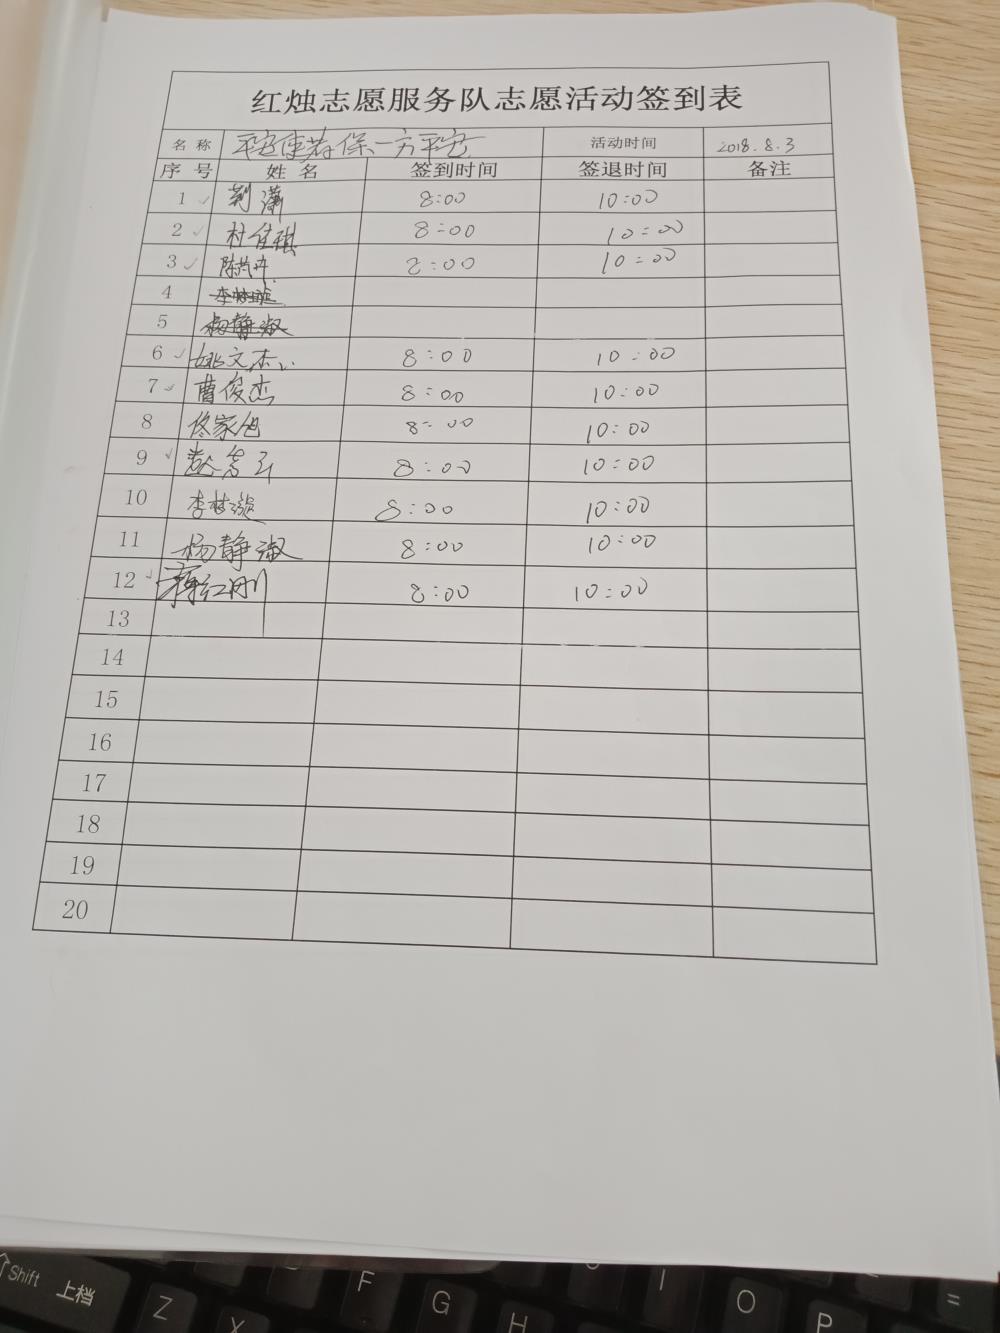 红烛志愿服务队志愿活动签到表
名称 平安使者保一方平安 活动时间 2018.8.3
序号 姓名 签到时间 签退时间 备注
1 荆潇 8:00 10:00
2 杜佳琪 8:00 10:00
3 陈 8:00 10:00
4
5 杨静淑
6 姚文杰 8:00 10:00
7 曹俊杰 8:00 10:00
8 佟家旭 8:00 10:00
9 8:00 10:00
10 李梦漩 8:00 10:00
11 杨静淑 8:00 10:00
12 红刚 8:00 10:00
13
14
15
16
17
18
19
20
Shift 上档
Z X F G H I O P =